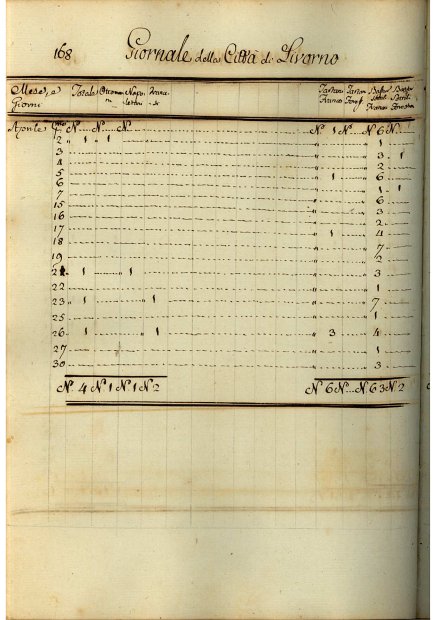 168 Giornale della Città di Livorno
Mese, e Totale Ottoman Napo Franc Tartan Tartan
Giorni Franco
Aprile N. N. N. N. 1 N. N. 6 N.
2 1 1 1
3 3 1
4 2
5 1 6
6 1 1
7 6
15 3
16 2
17 1 4
18 7
19 2
21 1 1 3
22 1
23 1 1 7
25 1
26 1 1 3 4
27 1
30 3
N. 4 N. 1 N. 1 N. 2 N. 6 N. N. 63 N. 2